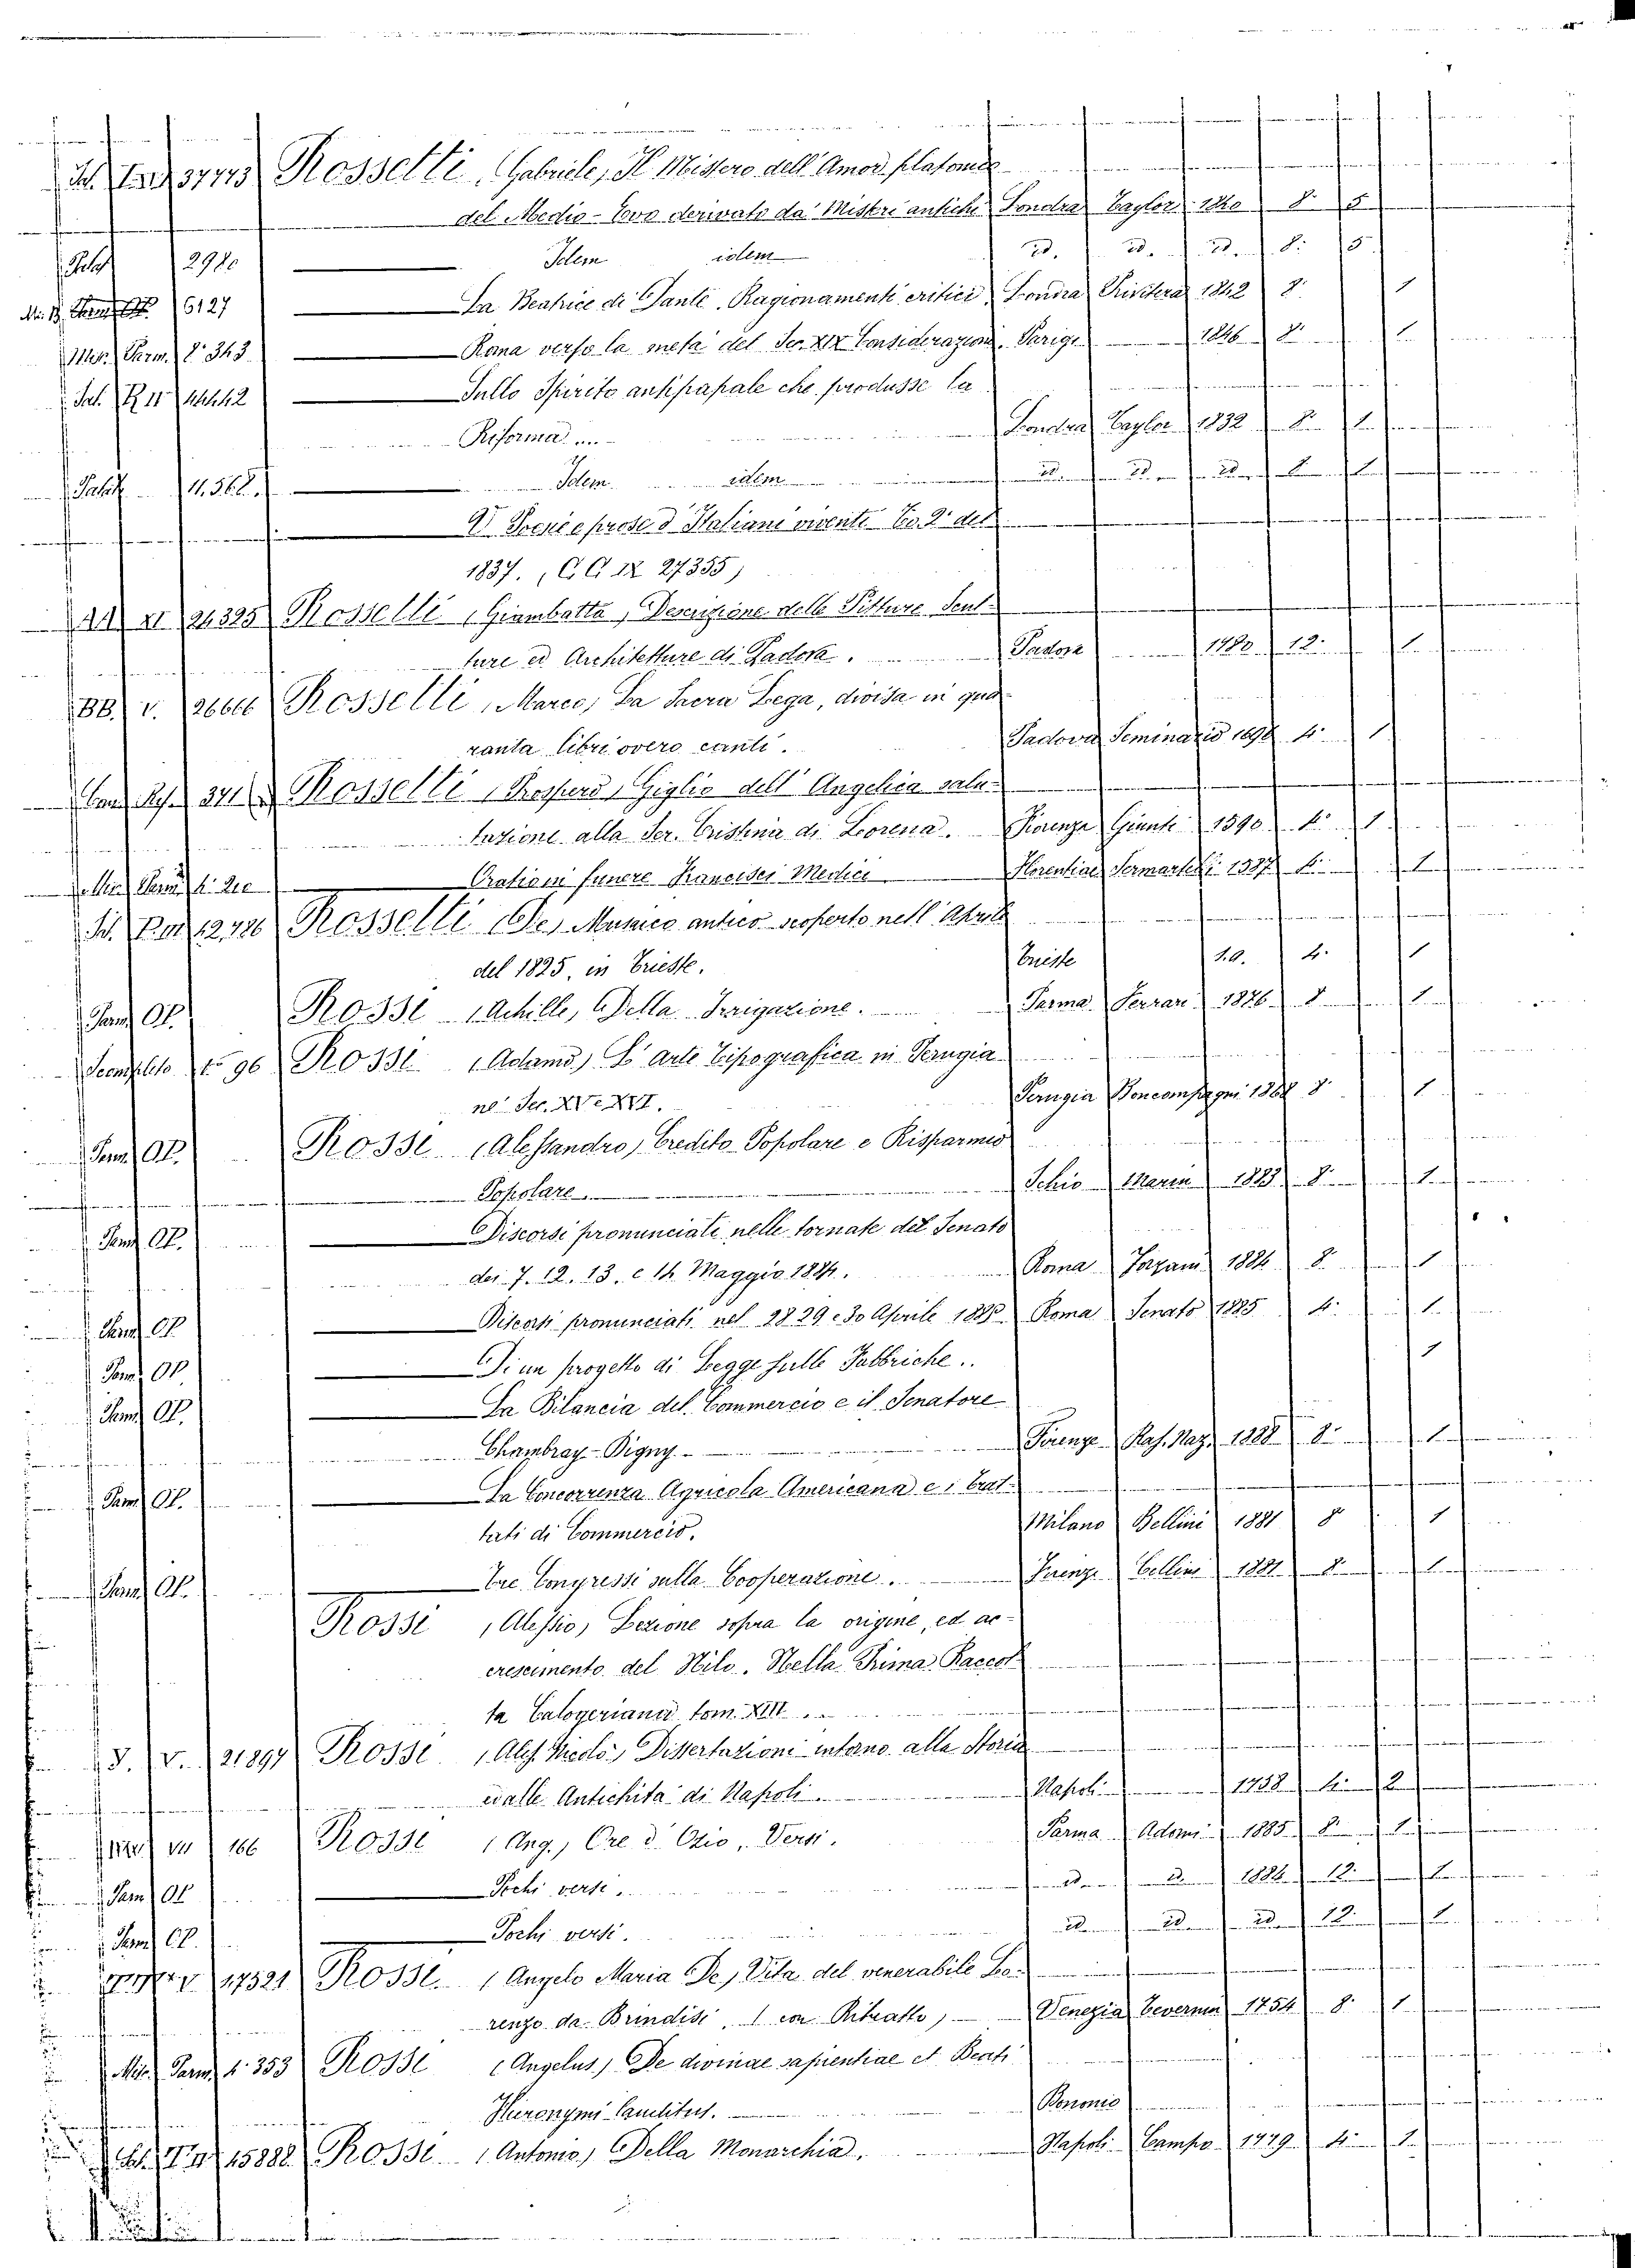 37773 Rossetti, Gabriele, Il Mistero dell' Amor platonico
del Medio-Evo derivato da' Misteri antichi Londra Taylor 1840 8° 5
2980 Idem idem id. id. id. 8° 5
6127 La Beatrice di Dante. Ragionamenti critici Londra 1842 8° 1
Parm. 8° 343 Roma verso la metà del Sec. XIX Considerazioni. Parigi 1846 8° 1
Sullo Spirito antipapale che produsse la
Riforma Londra Taylor 1832 8° 1
11,568 Idem idem id. id. id. 8° 1
V. Poesie e prose d' Italiani viventi To. 2° del
1837. (CC IX 27355)
AA XI 24325 Rossetti (Giambatta) Descrizione delle Pitture Scul-
ture ed Architetture di Padova. Padova 1780 12° 1
BB. V. 26666 Rossetti, Marco, La Sacra Lega, divisa in qua-
ranta libri overo canti. Padova Seminario 1696 4° 1
341 Rosselli (Prospero) Giglio dell' Angelica salu-
tazione alla Ser. Cristina di Lorena. Fiorenza Giunti 1590 4° 1
Orationi funere Francisci Medici Florentiae Sermartelli 1587 4° 1
Rossetti (De) Musaico antico scoperto nell' Aprile
del 1825 in Trieste. Trieste 4° 1
Parm OP. Rossi (Achille) Della Irrigazione. Parma Ferrari 1876 8° 1
96 Rossi (Adamo) L' arte Tipografica in Perugia
ne' Sec. XV e XVI. Perugia Boncompagni 1868 8° 1
Parm OP. Rossi (Alessandro) Credito Popolare e Risparmio
Popolare Schio Marin 1883 8° 1
Parm OP. Discorsi pronunciati nelle tornate del Senato
dei 7. 12. 13. e 14 Maggio 1884. Roma 1884 8° 1
Parm OP. Discorsi pronunciati nel 28 29 e 30 Aprile 1885 Roma Senato 1885 4° 1
Parm OP. Di un progetto di Legge sulle Fabbriche.. 1
Parm OP. La Bilancia del Commercio e il Senatore
Chambray-Digny Firenze Ras. Naz. 1888 8° 1
Parm OP. La Concorrenza Agricola Americana e i trat-
tati di Commercio. Milano Bellini 1881 8° 1
Parm OP. Tre Congressi sulla Cooperazione. Firenze Cellini 1881 8° 1
Rossi (Alessio) Lezione sopra la origine, ed ac-
crescimento del Nilo. Nella Prima Raccol-
ta Calogeriana tom. XIII
S. V. 21894 Rossi (Aless. Niccolò) Dissertazioni intorno alla Storia
ed alle Antichità di Napoli. Napoli 1758 4° 2
VII 166 Rossi (Ang.) Ore d' Ozio, Versi. Parma Adorni 1885 8° 1
Parm OP. Pochi versi. id. id. 1886 12° 1
Parm OP. Pochi versi. id. id. id. 12° 1
17521 Rossi (Angelo Maria De) Vita del venerabile Lo-
renzo da Brindisi, (con Ritratto) Venezia Tevernin 1754 8° 1
Parm 4° 353 Rossi (Angelus) De divinae sapientiae et Beati
Hieronymi laudibus. Bononie
15888 Rossi (Antonio) Della Monarchia. Napoli Campo 1779 4° 1